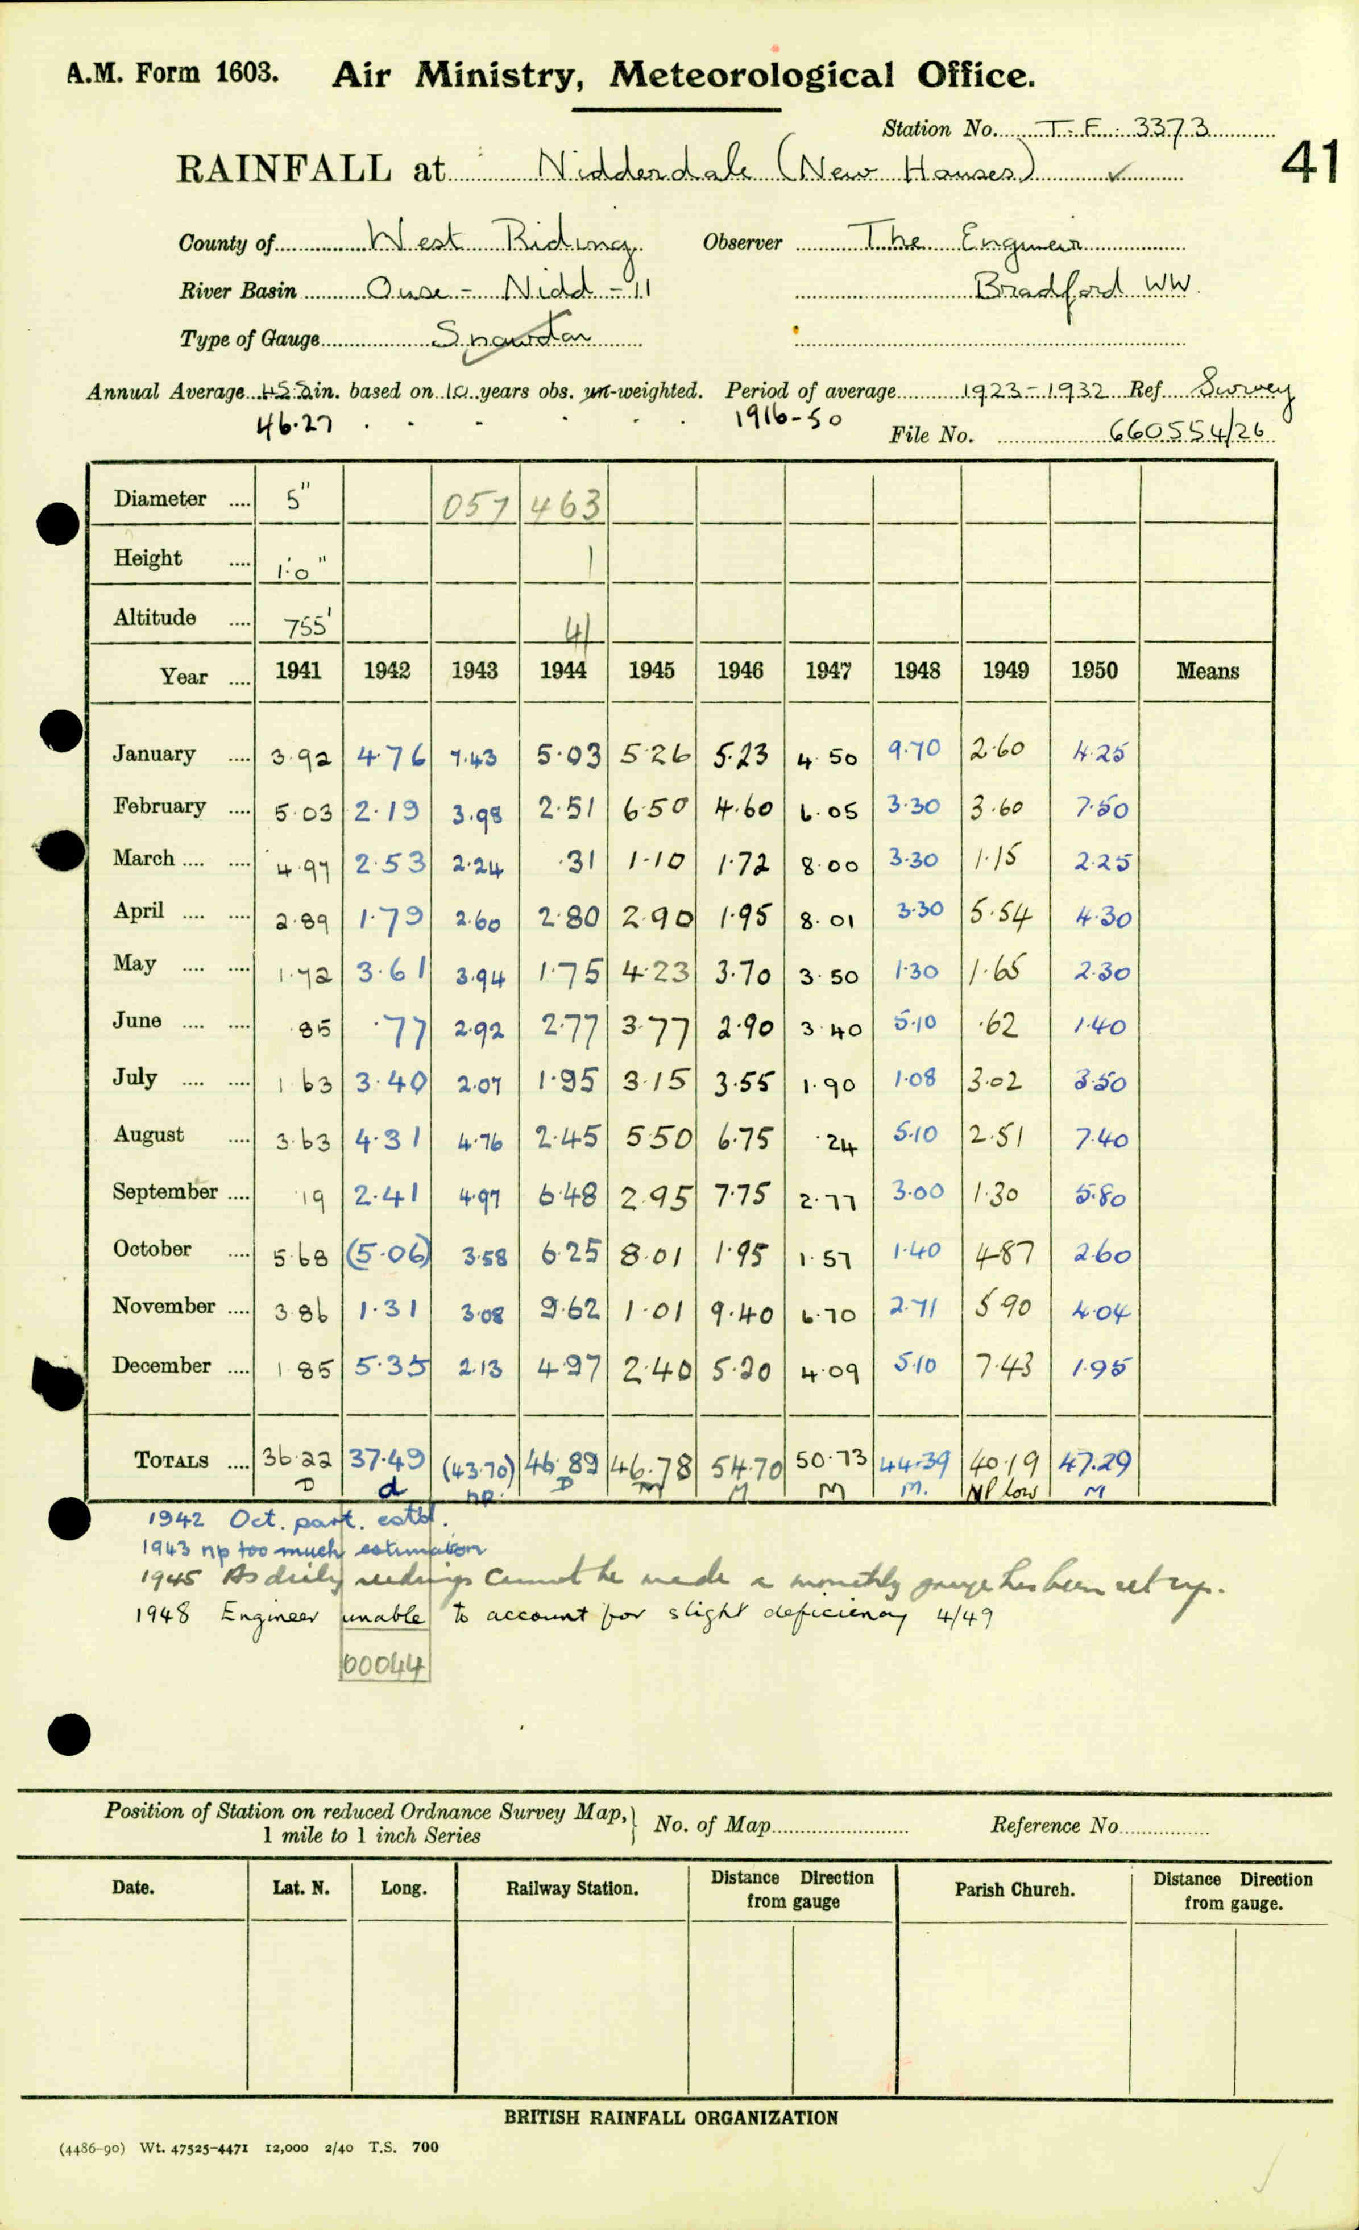 A.M. Form 1603. Air Ministry, Meteorological Office.
Station No. T.F. 3373
41
RAINFALL at Nidderdale (New Houses) ✓
County of West Riding Observer The Engineer
River Basin Ouse - Nidd - 11 Bradford WW.
Type of Gauge Snowdon
Annual Average 45.5 in. based on 10 years obs. un-weighted. Period of average 1923-1932 Ref. Survey
46.27 . . - . . 1916-50
File No. 660554/26
Diameter .... 5" 057 463
Height .... 1'.0" 1
Altitude .... 755' 41
Year .... 1941 1942 1943 1944 1945 1946 1947 1948 1949 1950 Means
January .... 3.92 4.76 7.43 5.03 5.26 5.23 4.50 9.70 2.60 4.25
February .... 5.03 2.19 3.98 2.51 6.50 4.60 6.05 3.30 3.60 7.50
March .... .... 4.97 2.53 2.24 .31 1.10 1.72 8.00 3.30 1.15 2.25
April .... .... 2.89 1.79 2.60 2.80 2.90 1.95 8.01 3.30 5.54 4.30
May .... .... 1.72 3.61 3.94 1.75 4.23 3.70 3.50 1.30 1.65 2.30
June .... .... .85 .77 2.92 2.77 3.77 2.90 3.40 5.10 .62 1.40
July .... .... 1.63 3.40 2.07 1.95 3.15 3.55 1.90 1.08 3.02 3.50
August .... 3.63 4.31 4.76 2.45 5.50 6.75 .24 5.10 2.51 7.40
September .... .19 2.41 4.97 6.48 2.95 7.75 2.77 3.00 1.30 5.80
October .... 5.68 (5.06) 3.58 6.25 8.01 1.95 1.57 1.40 4.87 2.60
November .... 3.86 1.31 3.08 9.62 1.01 9.40 6.70 2.71 5.90 4.04
December .... 1.85 5.35 2.13 4.97 2.40 5.20 4.09 5.10 7.43 1.95
TOTALS .... 36.22 37.49 (43.70) 46.89 46.78 54.70 50.73 44.39 40.19 47.29
D d np. D M M M M. NP low M
1942 Oct. part. estd.
1943 np too much estimation
1945 As daily readings cannot be made a monthly gauge has been set up.
1948 Engineer unable to account for slight deficiency 4/49
00044
Position of Station on reduced Ordnance Survey Map,} No. of Map Reference No.
1 mile to 1 inch Series
Date. Lat. N. Long. Railway Station. Distance Direction from gauge Parish Church. Distance Direction from gauge.
BRITISH RAINFALL ORGANIZATION
(4486-90) Wt. 47525-4471 12,000 2/40 T.S. 700